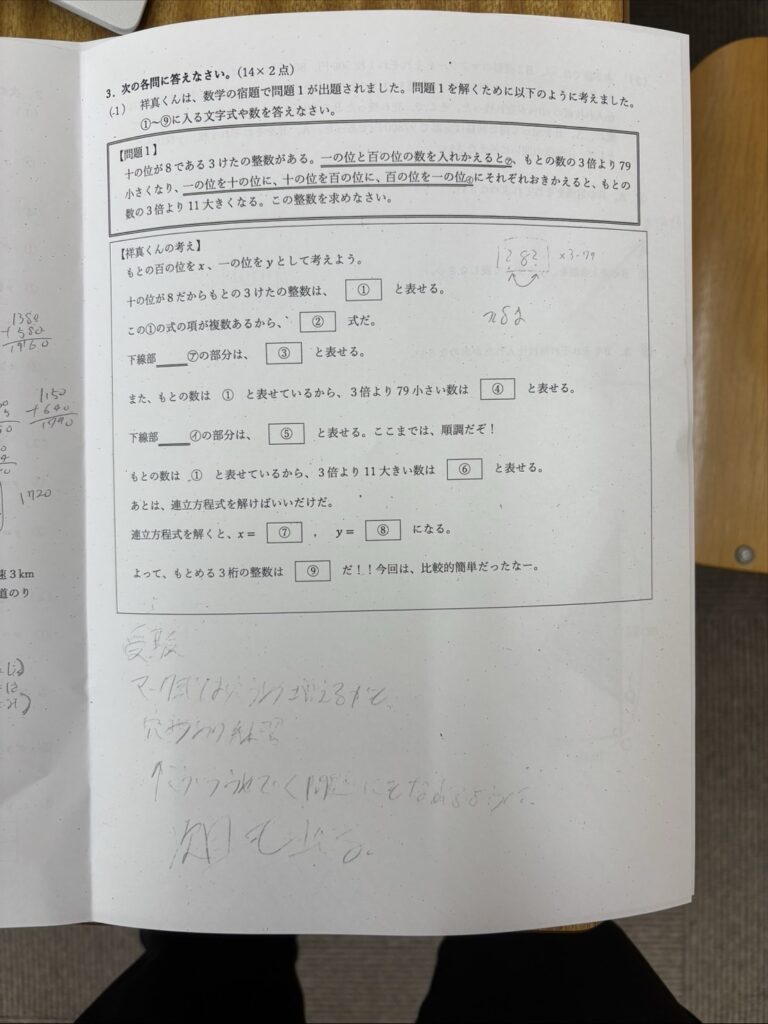 3．次の各問に答えなさい。(14×2点)
(1) 祥真くんは、数学の宿題で問題1が出題されました。問題1を解くために以下のように考えました。
①～⑨に入る文字式や数を答えなさい。
【問題1】
十の位が8である3けたの整数がある。一の位と百の位の数を入れかえると㋐、もとの数の3倍より79
小さくなり、一の位を十の位に、十の位を百の位に、百の位を一の位㋑にそれぞれおきかえると、もとの
数の3倍より11大きくなる。この整数を求めなさい。
【祥真くんの考え】
もとの百の位をx、一の位をyとして考えよう。
×3-79
十の位が8だからもとの3けたの整数は、 ① と表せる。
この①の式の項が複数あるから、 ② 式だ。
下線部 ㋐の部分は、 ③ と表せる。
また、もとの数は ① と表せているから、3倍より79小さい数は ④ と表せる。
下線部 ㋑の部分は、 ⑤ と表せる。ここまでは、順調だぞ！
もとの数は ① と表せているから、3倍より11大きい数は ⑥ と表せる。
あとは、連立方程式を解けばいいだけだ。
連立方程式を解くと、x＝ ⑦ ， y＝ ⑧ になる。
よって、もとめる3桁の整数は ⑨ だ！！今回は、比較的簡単だったなー。
1380
+580
1960
1150
+640
1790
1720
速3km
道のり
受験